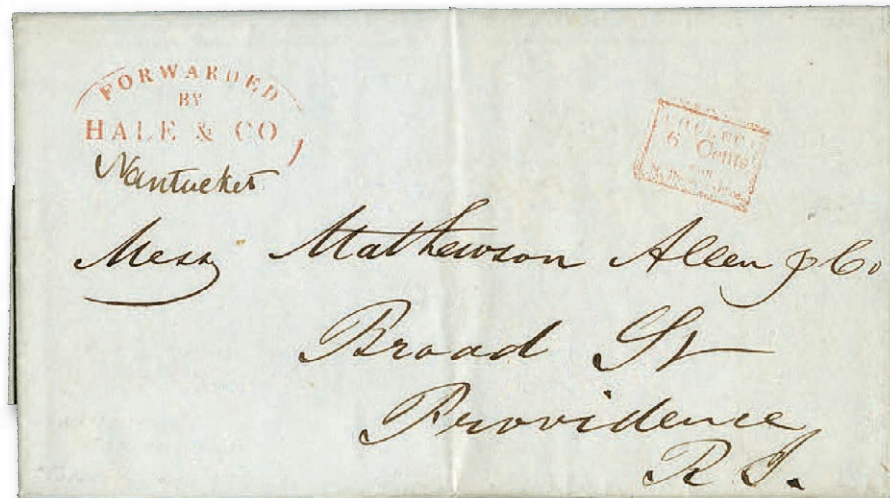 FORWARDED
BY
HALE & CO
Nantucket
COLLECT
6 Cents
Mess Mathewson Allen & Co
Broad St
Providence
R I.